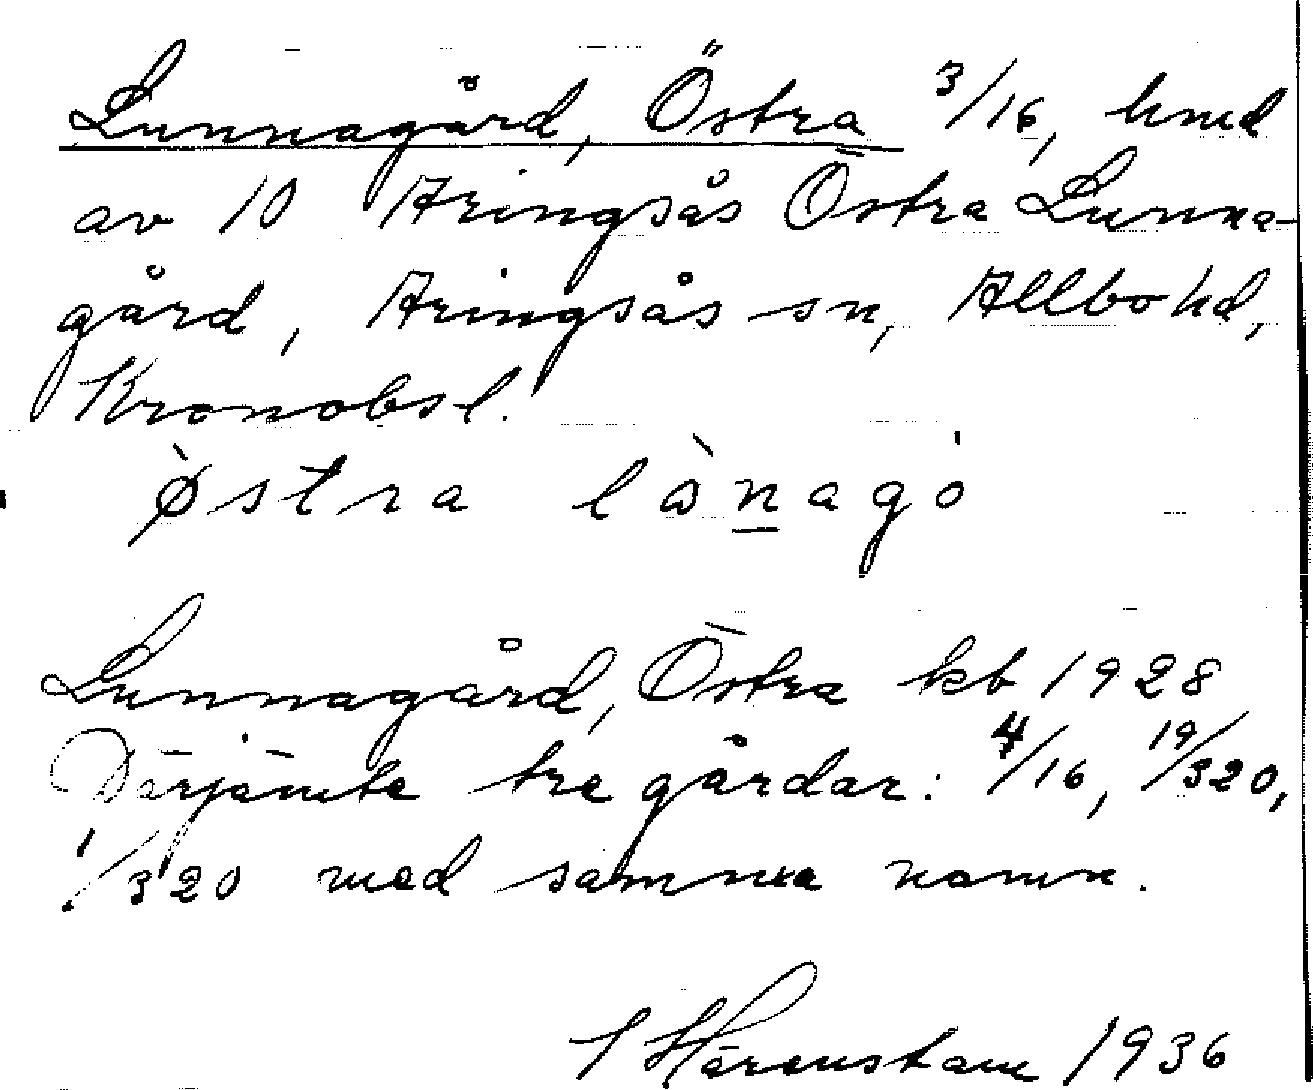 Lunnagård, Östra 3/16, hmd
av 10 Aringsås Östra Lunna-
gård, Aringsås sn, Allbo hd,
Kronobs l.
ø̀stra lànagó
Lunnagård, Östra kb 1928
Därjämte tre gårdar: 4/16, 19/320,
1/320 med samma namn.
S Härenstam 1936